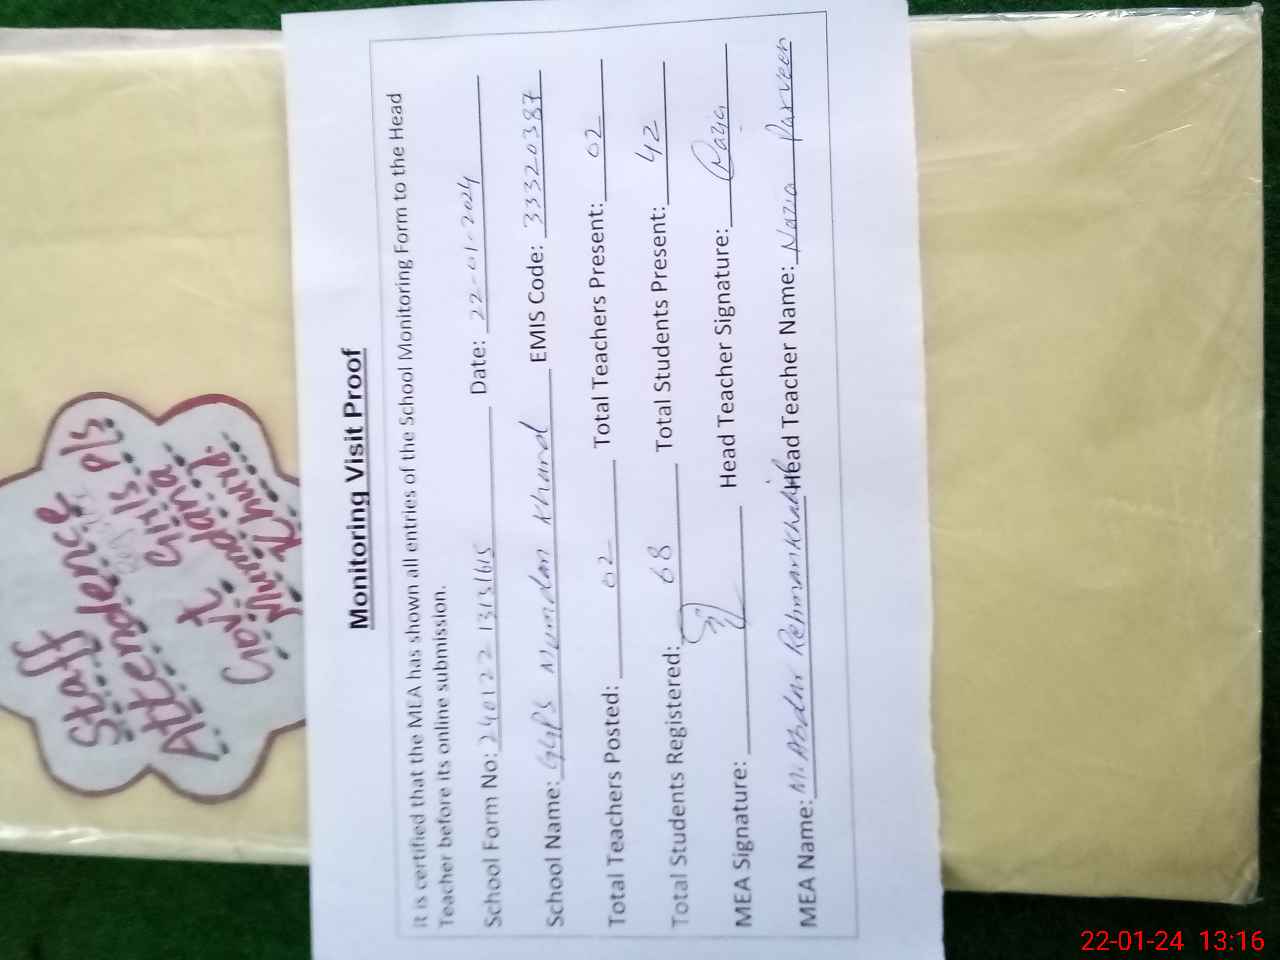 Staff
Attendence
Gov't Girls P/S
Mumdana
Khurd.
Monitoring Visit Proof
It is certified that the MEA has shown all entries of the School Monitoring Form to the Head
Teacher before its online submission.
School Form No: 2401221313165 Date: 22-01-2024
School Name: GGPS Mumdan Khurd EMIS Code: 33320387
Total Teachers Posted: 02 Total Teachers Present: 02
Total Students Registered: 68 Total Students Present: 42
MEA Signature: Head Teacher Signature: Nazia
MEA Name: M. Abdur Rehman Khalid Head Teacher Name: Nazia Parveen
22-01-24 13:16